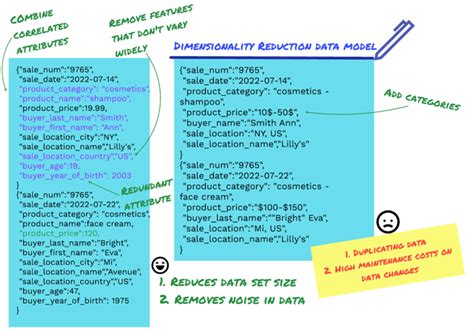 COMBINE
CORRELATED
ATTRIBUTES
REMOVE FEATURES
THAT DON'T VARY
WIDELY
DIMENSIONALITY REDUCTION DATA MODEL
{"sale_num":"9765",
"sale_date":"2022-07-14",
"product_category": "cosmetics",
"product_name":"shampoo",
"product_price":19.99,
"buyer_last_name":"Smith",
"buyer_first_name": "Ann",
"sale_location_city":"NY",
"sale_location_name","Lilly's",
"sale_location_country","US",
"buyer_age":19,
"buyer_year_of_birth": 2003
}
{"sale_num":"9765",
"sale_date":"2022-07-22",
"product_category": "cosmetics",
"product_name":face cream,
"product_price":120,
"buyer_last_name":"Bright",
"buyer_first_name": "Eva",
"sale_location_city":"Mi",
"sale_location_name","Avenue",
"sale_location_country","US",
"buyer_age":47,
"buyer_year_of_birth": 1975
}
REDUNDANT
ATTRIBUTE
{"sale_num":"9765",
"sale_date":"2022-07-14",
"product_category": "cosmetics -
shampoo",
"product_price":"10$-50$",
"buyer_name":"Smith Ann",
"sale_location":"NY, US",
"sale_location_name","Lilly's"
}
{"sale_num":"9765",
"sale_date":"2022-07-22",
"product_category": "cosmetics -
face cream",
"product_price":"$100-$150",
"buyer_name":""Bright" Eva",
"sale_location":"Mi, US",
"sale_location_name","Lilly's"
}
ADD CATEGORIES
1. REDUCES DATA SET SIZE
2. REMOVES NOISE IN DATA
1. DUPLICATING DATA
2. HIGH MAINTENANCE COSTS ON
DATA CHANGES